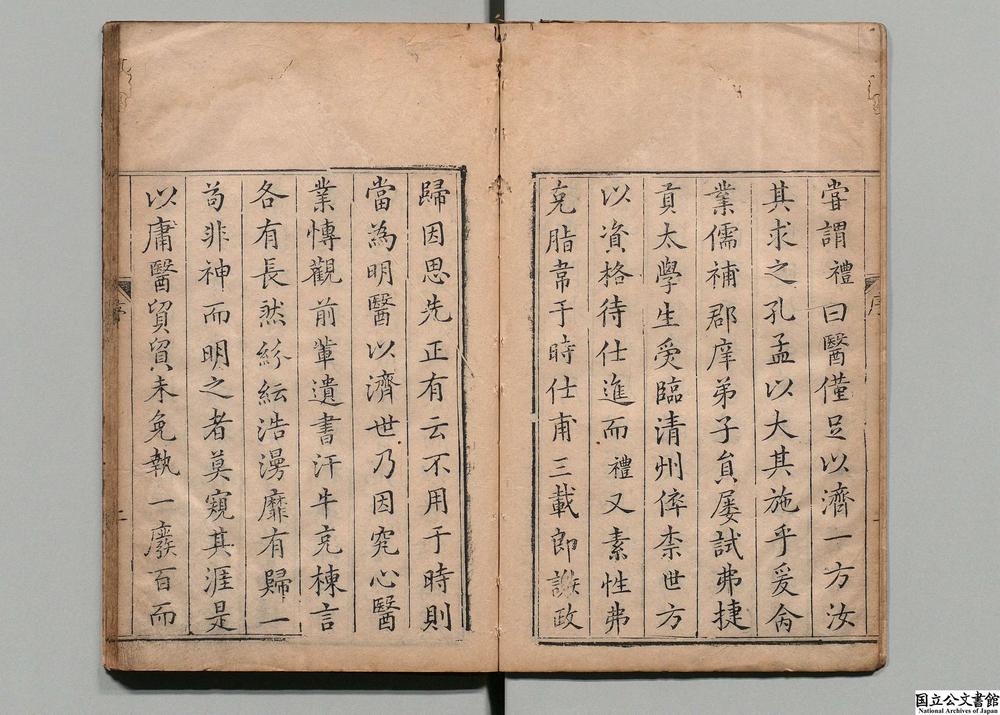 甞謂禮曰醫僅足以濟一方汝
其求之孔孟以大其施乎爰舍
業儒補郡庠弟子員屢試弗捷
貢太學生受臨清州倅柰世方
以資格待仕進而禮又素性弗
克脂韋于時仕甫三載即謝政
歸因思先正有云不用于時則
當為明醫以濟世乃因究心醫
業慱觀前軰遺書汗牛充棟言
各有長然紛紜浩漫靡有歸一
苟非神而明之者莫窺其涯是
以庸醫貿貿未免執一廢百而
序
序
二
国立公文書館
National Archives of Japan